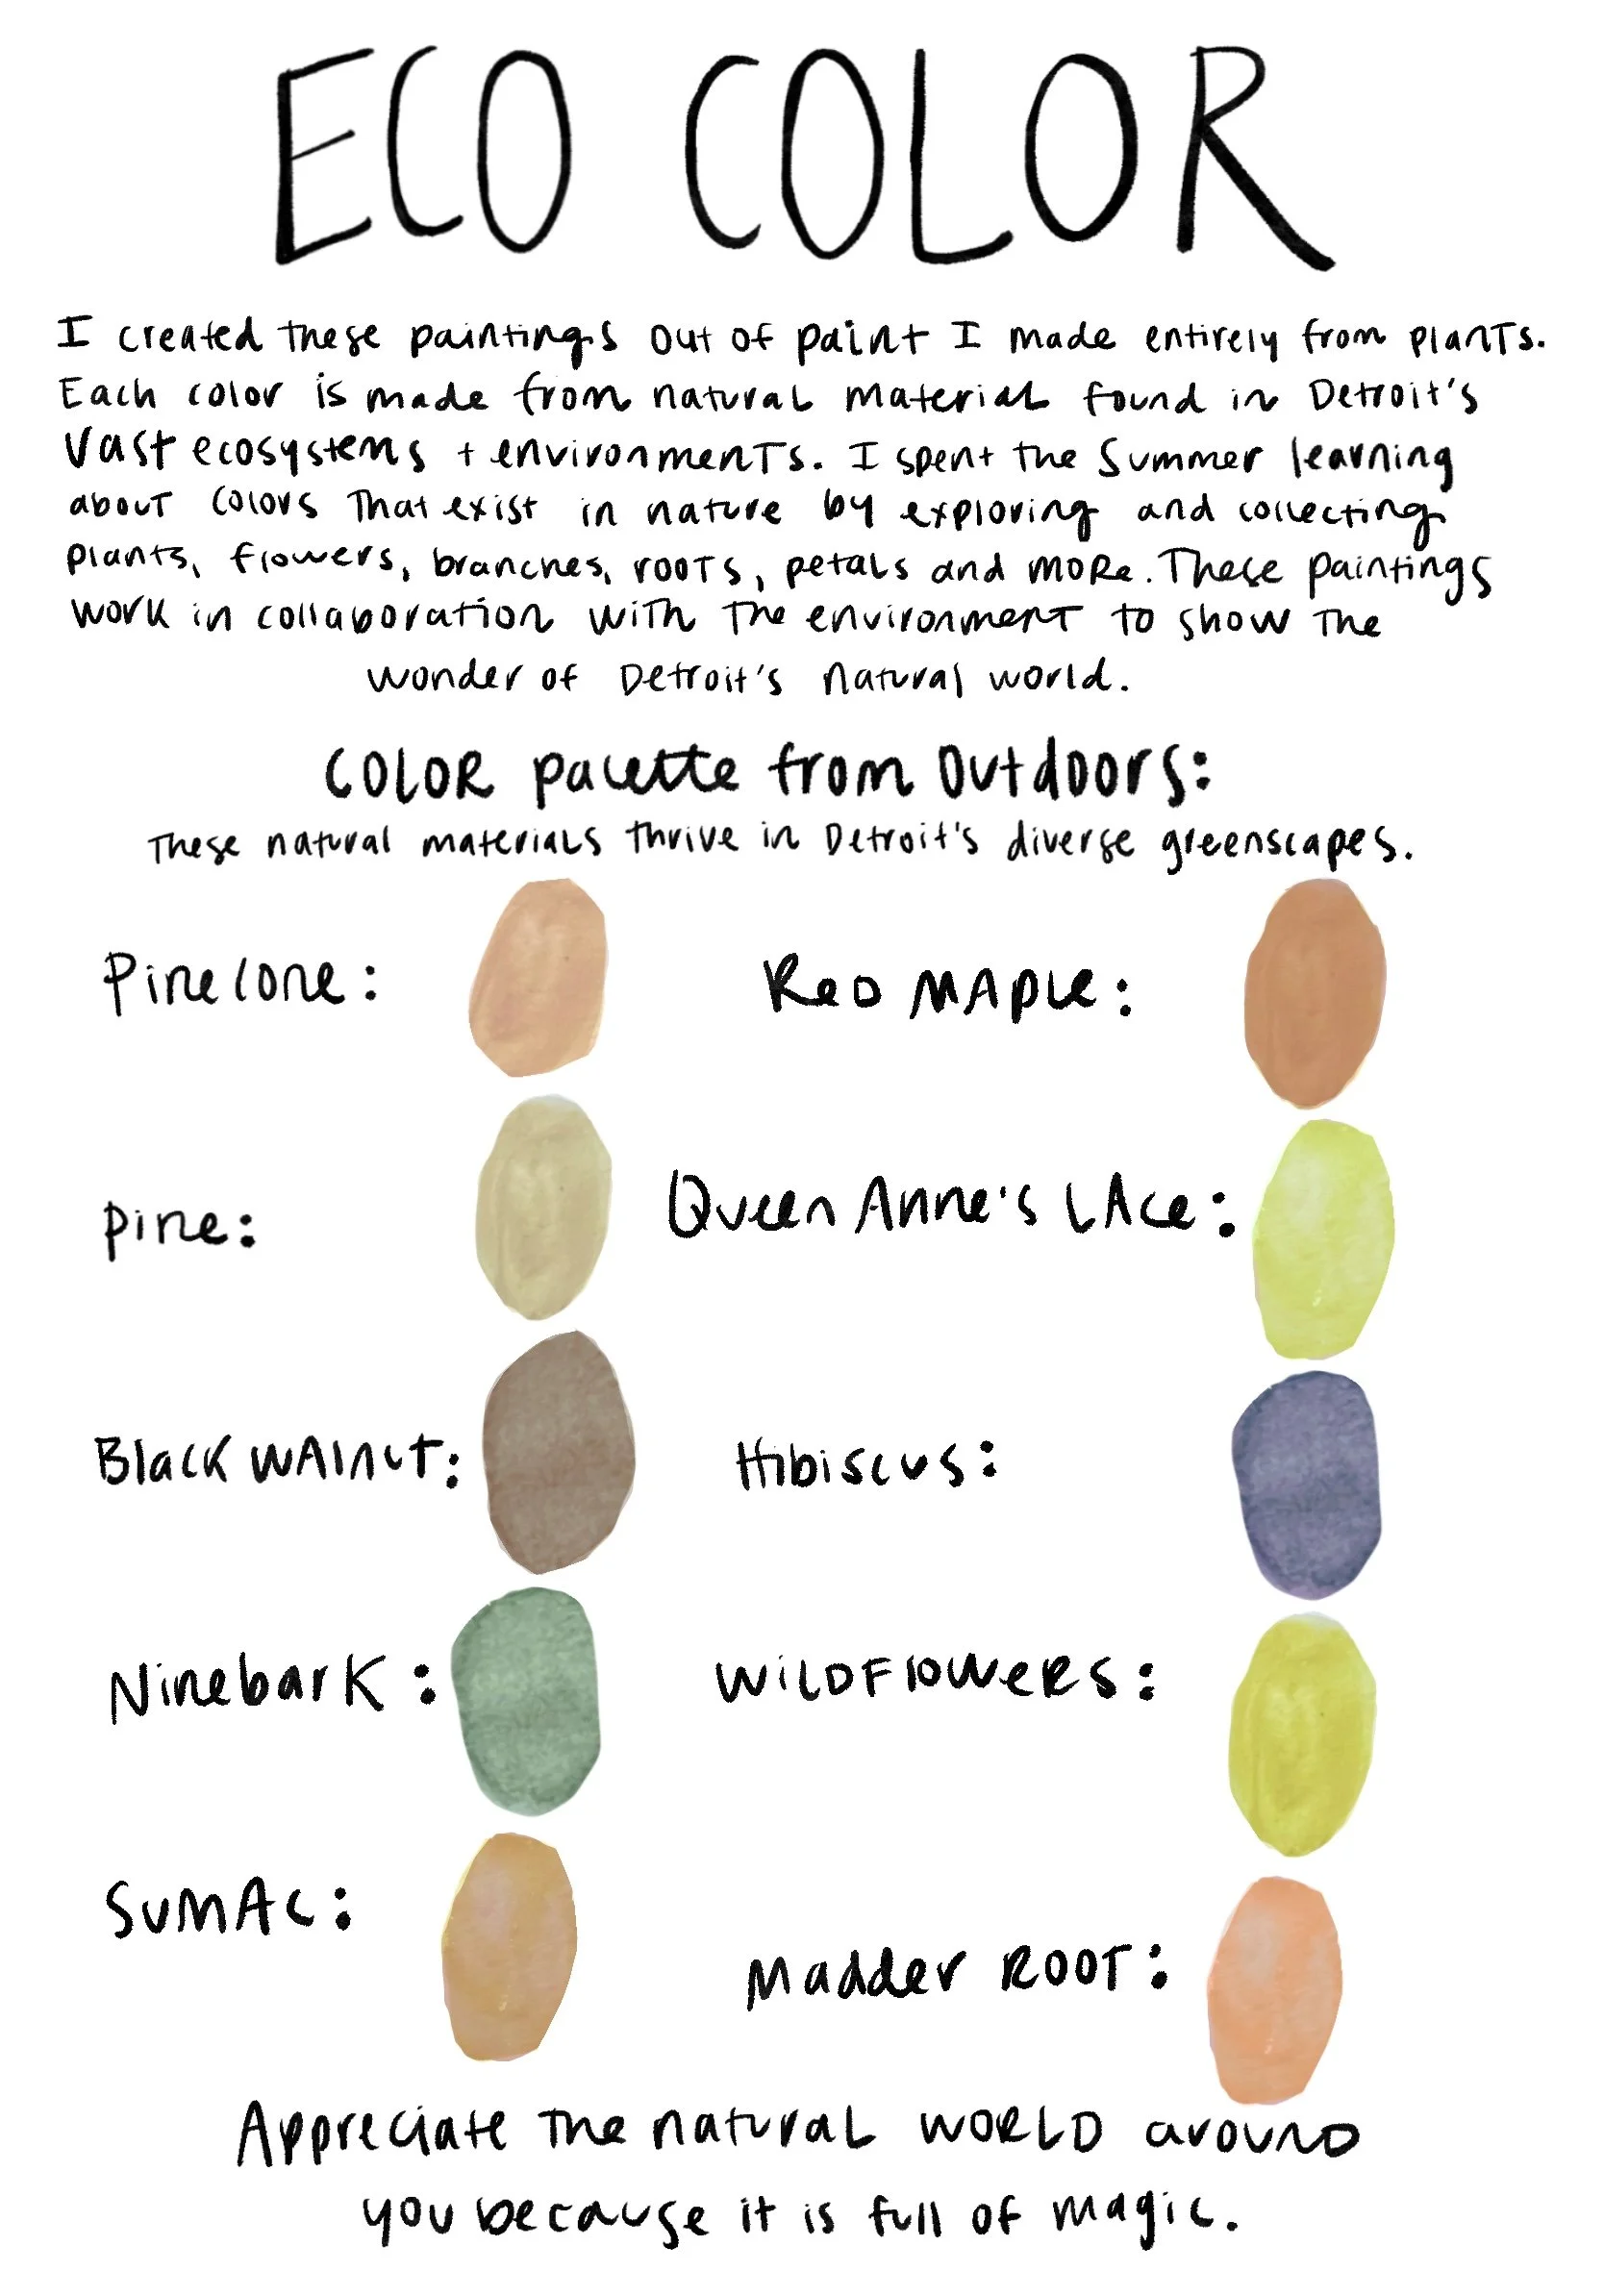 ECO COLOR
I created these paintings out of paint I made entirely from plants.
Each color is made from natural material found in Detroit's
vast ecosystems + environments. I spent the summer learning
about colors that exist in nature by exploring and collecting
plants, flowers, branches, roots, petals and more. These paintings
work in collaboration with the environment to show the
wonder of Detroit's natural world.
COLOR palette from Outdoors:
These natural materials thrive in Detroit's diverse greenscapes.
Pinecone:
Red Maple:
Pine:
Queen Anne's Lace:
Black Walnut:
Hibiscus:
Ninebark:
Wildflowers:
Sumac:
Madder Root:
Appreciate the natural world around
you because it is full of magic.